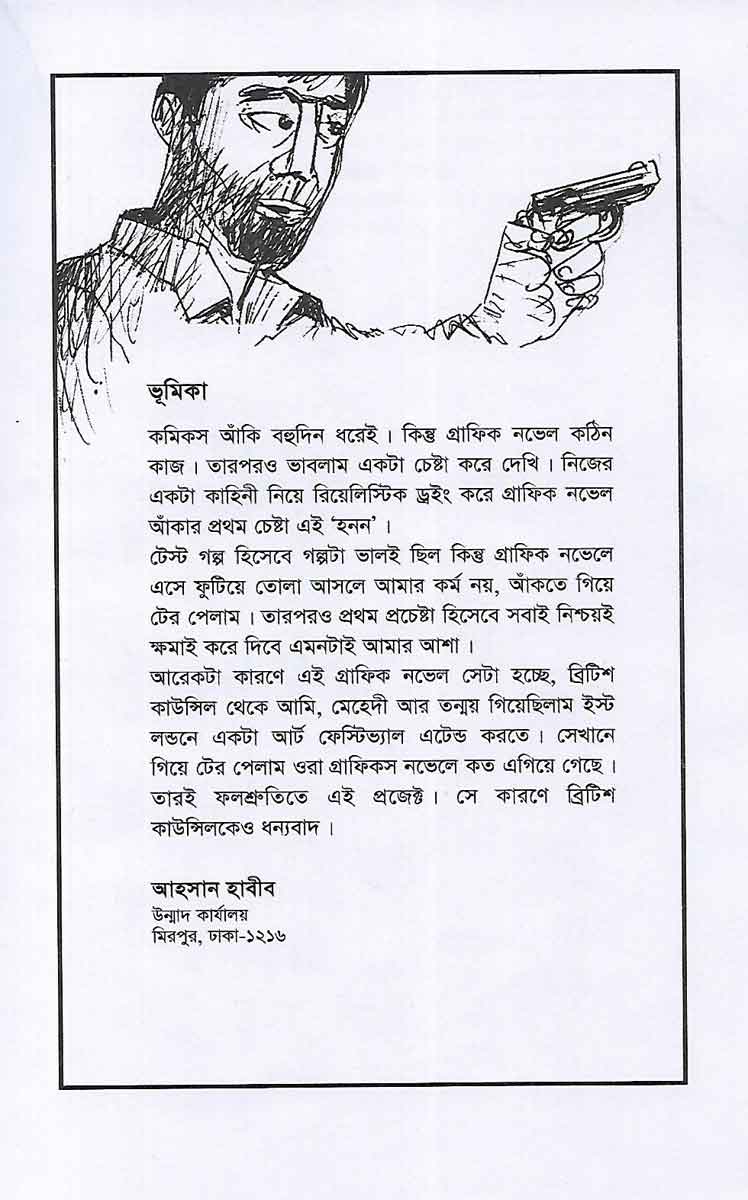 ভূমিকা
কমিকস আঁকি বহুদিন ধরেই । কিন্তু গ্রাফিক নভেল কঠিন
কাজ । তারপরও ভাবলাম একটা চেষ্টা করে দেখি । নিজের
একটা কাহিনী নিয়ে রিয়েলিস্টিক ড্রইং করে গ্রাফিক নভেল
আঁকার প্রথম চেষ্টা এই ‘হনন’ ।
টেস্ট গল্প হিসেবে গল্পটা ভালই ছিল কিন্তু গ্রাফিক নভেলে
এসে ফুটিয়ে তোলা আসলে আমার কর্ম নয়, আঁকতে গিয়ে
টের পেলাম । তারপরও প্রথম প্রচেষ্টা হিসেবে সবাই নিশ্চয়ই
ক্ষমাই করে দিবে এমনটাই আমার আশা ।
আরেকটা কারণে এই গ্রাফিক নভেল সেটা হচ্ছে, ব্রিটিশ
কাউন্সিল থেকে আমি, মেহেদী আর তন্ময় গিয়েছিলাম ইস্ট
লন্ডনে একটা আর্ট ফেস্টিভ্যাল এটেন্ড করতে । সেখানে
গিয়ে টের পেলাম ওরা গ্রাফিকস নভেলে কত এগিয়ে গেছে ।
তারই ফলশ্রুতিতে এই প্রজেক্ট । সে কারণে ব্রিটিশ
কাউন্সিলকেও ধন্যবাদ ।
আহসান হাবীব
উন্মাদ কার্যালয়
মিরপুর, ঢাকা-১২১৬